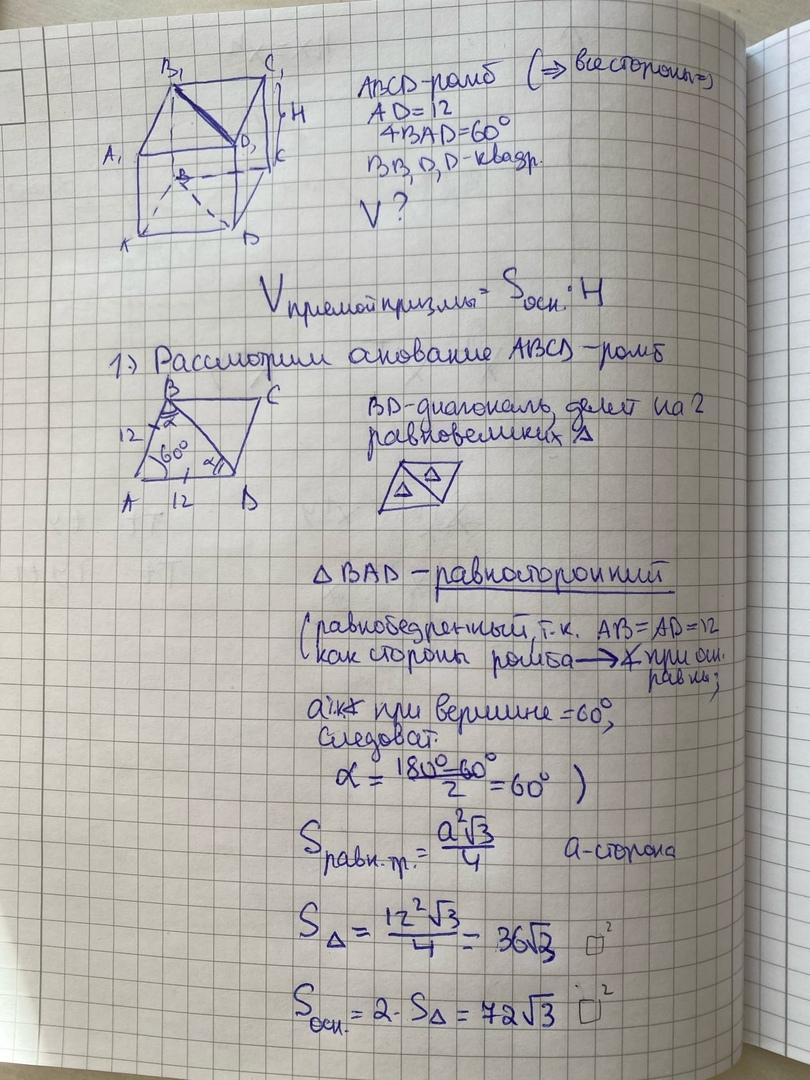 B₁ C₁
H
A₁ D₁
B C
A D
ABCD-ромб (⇒ все стороны =)
AD=12
∢BAD=60°
BB₁D₁D-квадр.
V ?
V прямой призмы = Sосн. · H
1.) Рассмотрим анование ABCD-ромб
B C
12 α
60° α
A 12 D
BD-диагональ, делет на 2
равновеликих Δ
Δ Δ
Δ BAD – равносторонний
(равнобедренный, т.к. AB=AD=12
как стороны ромба → ∢ при осн.
равны;
а ∢ при вершине =60°,
следоват.
α = (180°-60°)/2 = 60° )
Sравн.тр. = a²√3/4 a-сторона
SΔ = 12²√3/4 = 36√3 □²
Sосн. = 2· SΔ = 72√3 □²